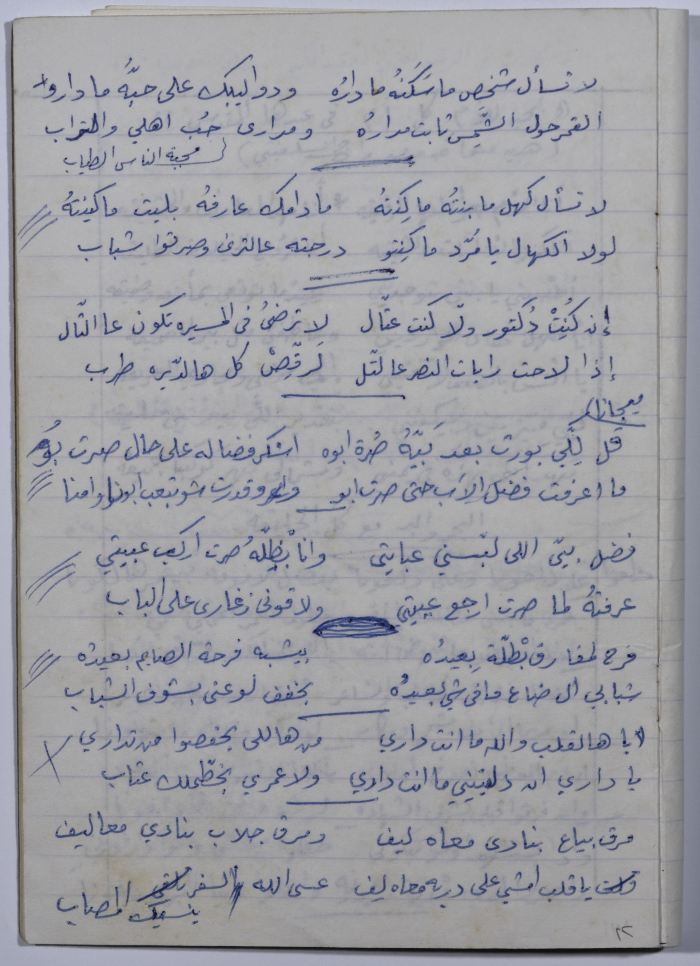 لا تسأل شخص ما سكنه ما داره ودواليبك على حبه ما داروا
القمر حول الشمس ثابت مداره ومداري حب اهلي والتراب
محبة الناس الطياب
لا تسأل كهل ما بنته ما كنته ما دامك عارفه بلبيت ما كينته
لولا الكهال يا مرد ما كنتو درجته عالترى وصرتوا شباب
إن كنت دكتور ولا كنت عتال لا ترضى في المسيره تكون عا التال
إذا لاحت رايات النصر عالتل لرقص كل هالديره طرب
قل بعد بيه ابوه اشكر فضاله على حال صرت
ما اعرفت فضل الأب حتى صرت ابو وقدرت شو بتعب ابونا وامنا
فضل بيي اللي لبسني عبايتي وانا بظله صرت اركب عبيتي
عرفته لما صرت ارجع عبيتي ولاقوني زغاري على الباب
فرح لمفارق بطلة بعيده بيشبه فرحة الصايم بعيده
شبابي ال ضاع ما في شي بعيده بخفف لوعتي بشوف الشباب
يا هالقلب والله ما انت داري من هاللي بخصوا من تداري
يا داري ان ما انت داري ولا عمري بخطملك عتاب
مرق بياع بنادي معاه ليف ومرق جلاب بنادي معاليف
يا قلب امشي على دربه معاه ليف عسى الله السفر
ينسيك المصاب
١٢